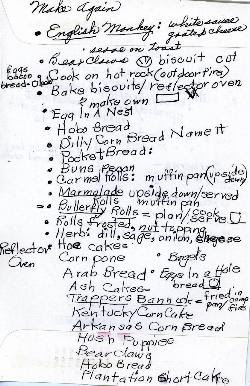 Make Again
• English Monkey: white sauce
grated cheese
- serve on toast
• Bear Claws biscuit cut
Eggs
bread
• Cook on hot rock (outdoor fire)
• Bake biscuits/reflector oven
make own
• Egg In A Nest
• Hobo Bread
• Dilly Corn Bread Name it
• Pocket Bread:
• Buns Pecan
• Carmel Rolls: muffin pan upside
down
• Marmalade upside down/served
Rolls muffin pan
• Butterfly Rolls = plan/cook
serve
• Rolls Frosted, nut topping
• Herb: dill, sage, onion, cheese
Reflector
Oven
• Hoe cakes
Corn pone • Bagels
Arab Bread • Eggs In a Hole
Ash Cakes bread
Trappers Bannock fried in
pan/fire
Kentucky Corn Cake
Arkansas Corn Bread
Hush Puppies
Bear Claws
Hobo Bread
Plantation Short Cake